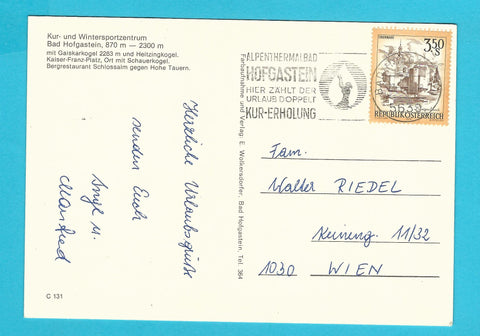 Kur- und Wintersportzentrum
Bad Hofgastein, 870 m — 2300 m
mit Gaiskarkogel 2263 m und Heitzingkogel.
Kaiser-Franz-Platz, Ort mit Schauerkogel.
Bergrestaurant Schlossalm gegen Hohe Tauern.
Herzliche Urlaubsgrüße
senden Euch
u.
Manfred
C 131
Farbaufnahme und Verlag: E. Wolkersdorfer, Bad Hofgastein, Tel. 364
ALPENTHERMALBAD
HOFGASTEIN
HIER ZÄHLT DER
URLAUB DOPPELT
KUR-ERHOLUNG
3.50
S
5630
REPUBLIK ÖSTERREICH
Fam.
Walter RIEDEL
11/32
1030 WIEN